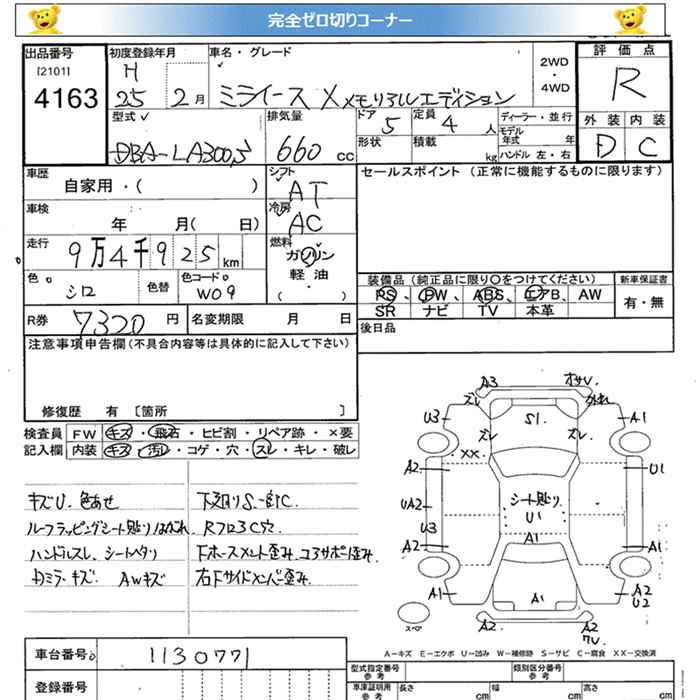 完全ゼロ切りコーナー
出品番号
[2101]
4163
初度登録年月
H
25 2月
車名・グレード
ミライース X メモリアルエディション
2WD
・
4WD
評価点
R
外装 内装
D C
型式
DBA-LA300S
排気量
660 cc
ドア
5
定員
4 人
形状
積載
kg
ディーラー・並行
モデル
年式 年
ハンドル 左・右
車歴
自家用・( )
シフト
AT
セールスポイント (正常に機能するものに限ります)
車検
年 月( 日)
冷房
AC
走行
9万4千925km
燃料
ガソリン
軽油
( ・ )
色
シロ
色替
色コードNo
W09
装備品 (純正品に限り〇をつけてください)
新車保証書
PS、PW、ABS、エアB、AW
SR ナビ TV 本革
有・無
R券 7320 円
名変期限 月 日
後日品
注意事項申告欄(不具合内容等は具体的に記入して下さい)
修復歴 有 [箇所 ]
検査員
記入欄
FW キズ・飛石・ヒビ割・リペア跡・×要
内装 キズ・汚レ・コゲ・穴・スレ・キレ・破レ
キズU.色あせ
ルーフラッピングシート貼りはがれ
ハンドルスレ、シートヘタリ
Dミラーキズ AWキズ
下廻りS一部C
Rフロ3C穴
Fホースメント歪み コアサポート歪み
右Fサイドメンバー歪み
A3
ズレ
U3
S1
ズレ
ズレ
A1
XX
A2
U1
UA2
シート貼り
U1
U3
A2
A1
A1
A1
A1
A2
U2
スペア
A2
A2
A-キズ E-エクボ U-凹み W-補修跡 S-サビ C-腐食 XX-交換済
車台番号 1130771
登録番号
型式指定番号
参考
類別区分番号
参考
車庫証明用
参考
長さ
cm
幅
cm
高さ
cm